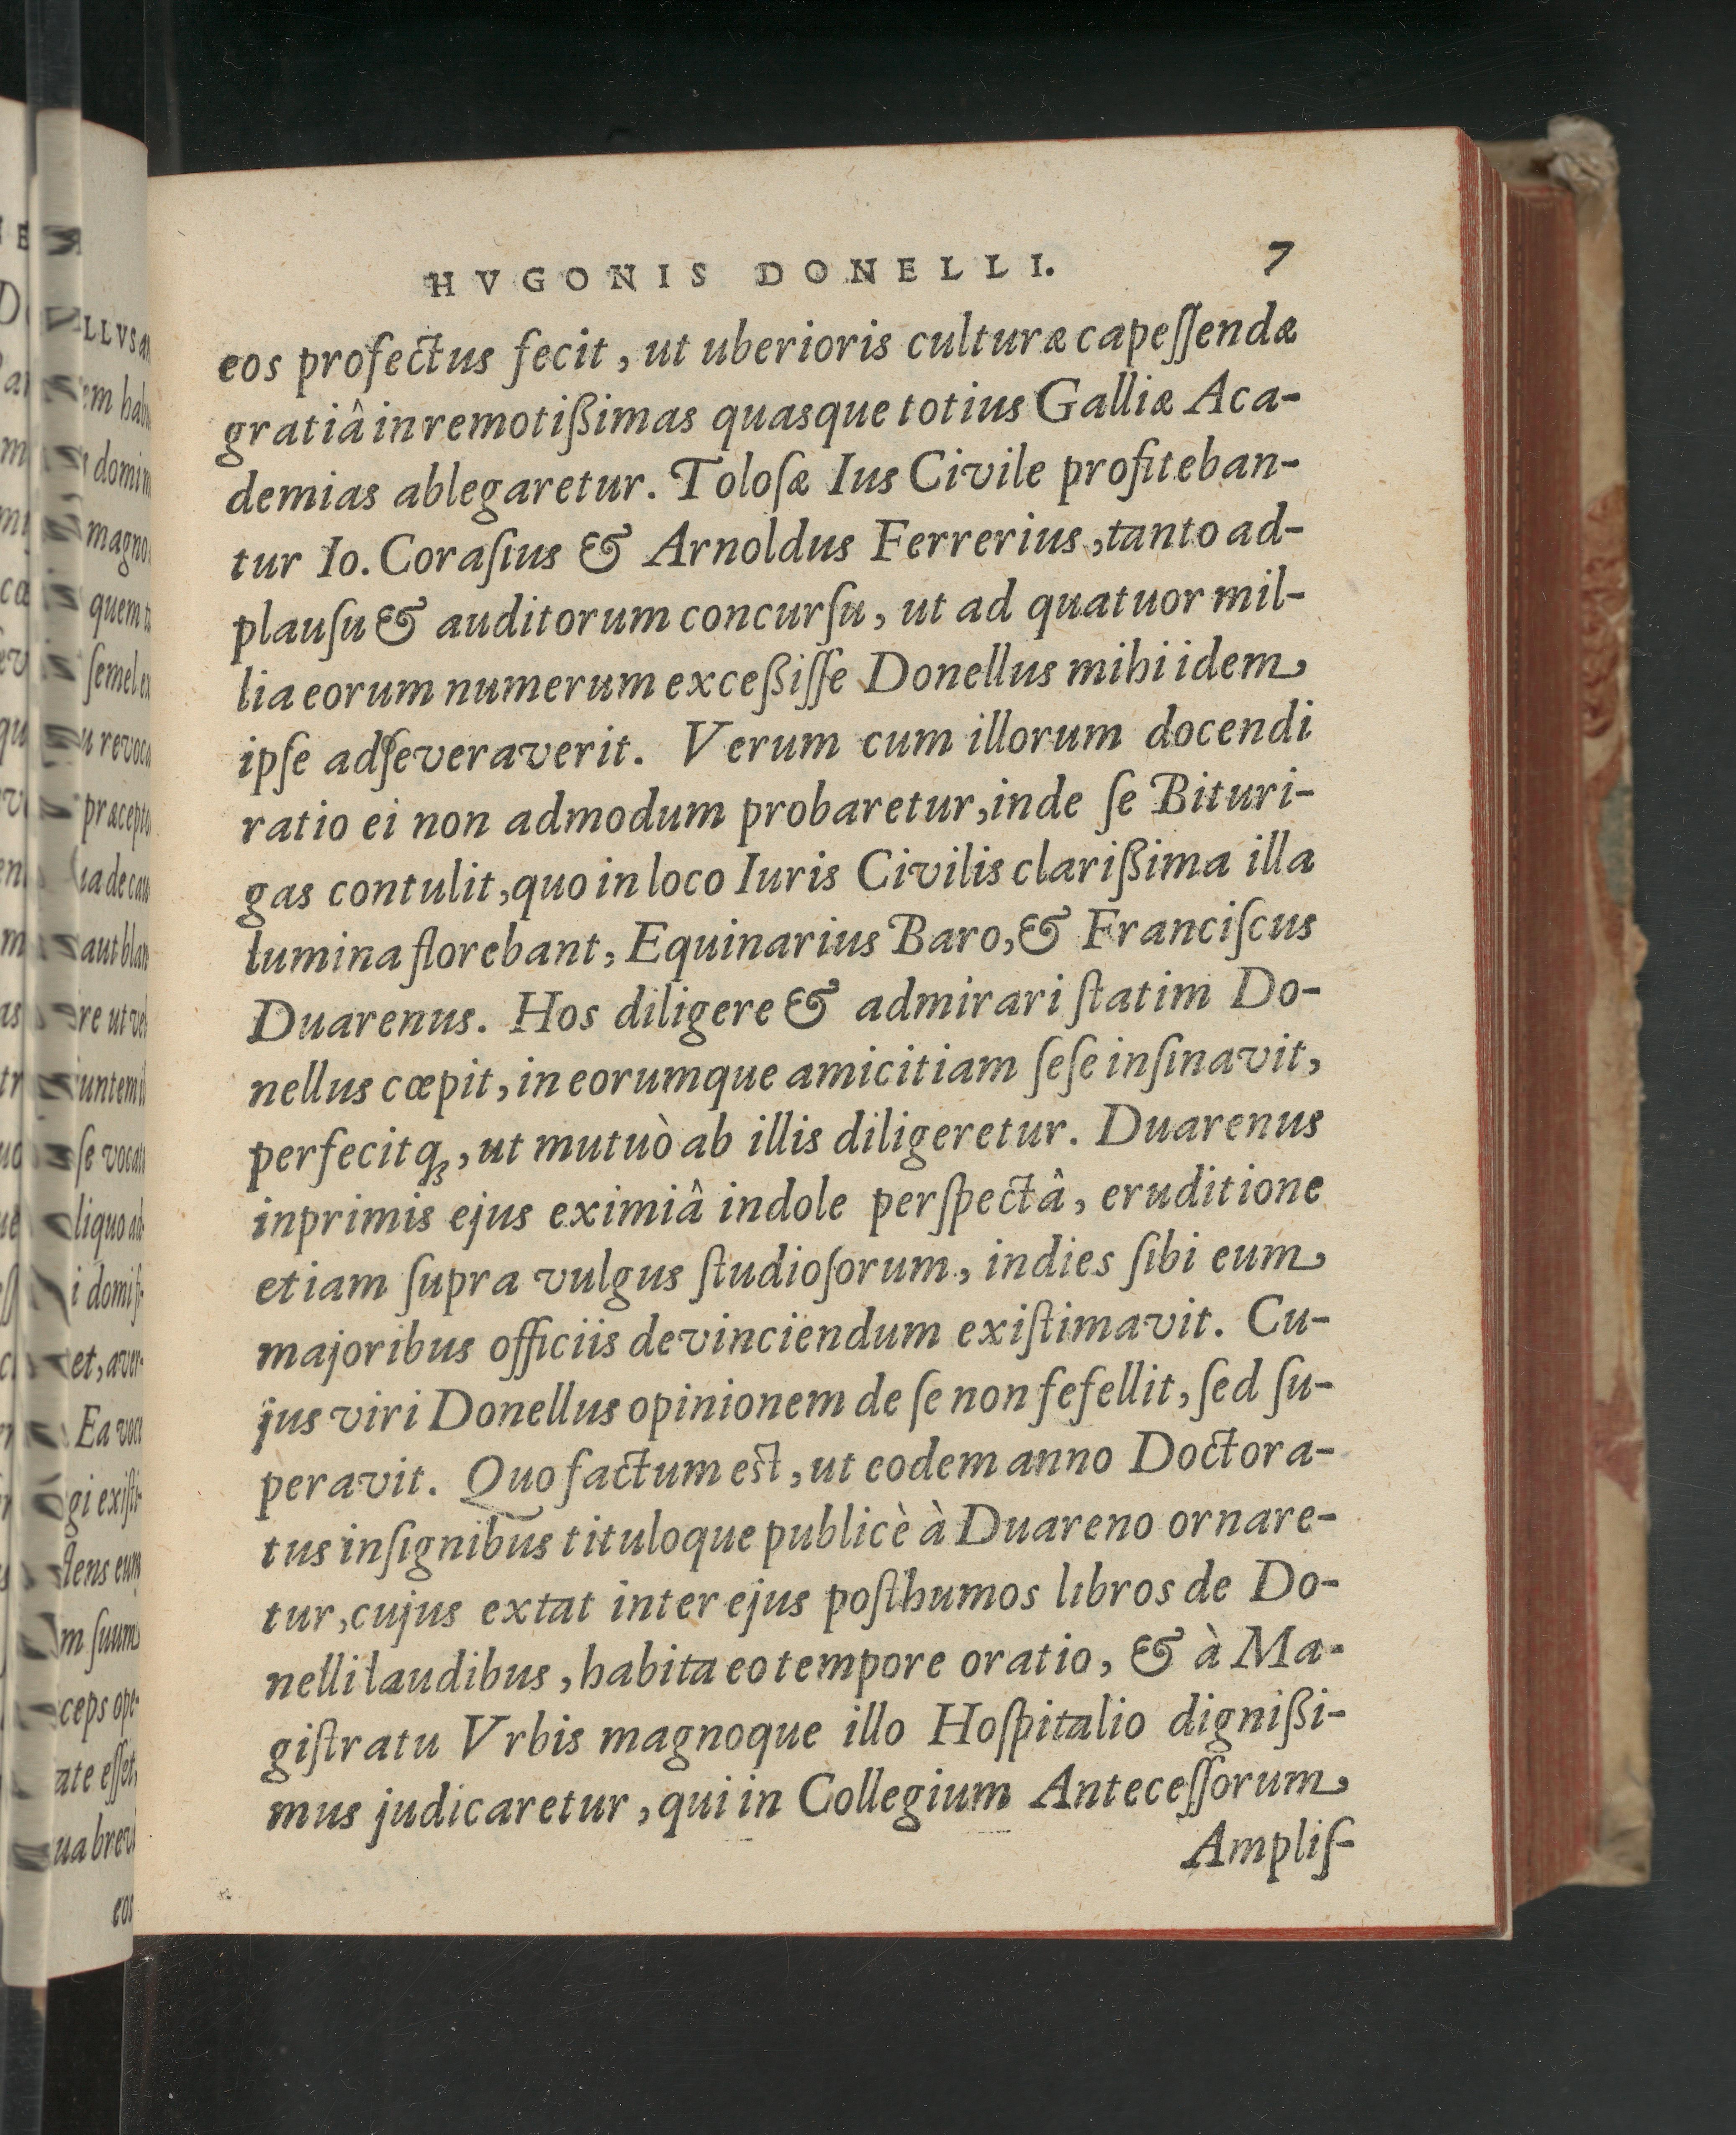 HVGONIS DONELLI. 7
eos profectus fecit, ut uberioris culturæ capeſſendæ
gratiâ in remotißimas quasque totius Galliæ Aca-
demias ablegaretur. Toloſæ Ius Civile profiteban-
tur Io. Coraſius & Arnoldus Ferrerius, tanto ad-
plauſu & auditorum concurſu, ut ad quatuor mil-
lia eorum numerum exceßiſſe Donellus mihi idem
ipſe adſeveraverit. Verum cum illorum docendi
ratio ei non admodum probaretur, inde ſe Bituri-
gas contulit, quo in loco Iuris Civilis clarißima illa
lumina florebant, Equinarius Baro, & Franciſcus
Duarenus. Hos diligere & admirari ſtatim Do-
nellus cœpit, in eorumque amicitiam ſeſe inſinavit,
perfecitq̃, ut mutuò ab illis diligeretur. Duarenus
inprimis ejus eximiâ indole perſpectâ, eruditione
etiam ſupra vulgus ſtudioſorum, indies ſibi eum
majoribus officiis devinciendum exiſtimavit. Cu-
jus viri Donellus opinionem de ſe non fefellit, ſed ſu-
peravit. Quo factum eſt, ut eodem anno Doctora-
tus inſignibus tituloque publicè à Duareno ornare-
tur, cujus extat inter ejus poſthumos libros de Do-
nelli laudibus, habita eo tempore oratio, & à Ma-
giſtratu Vrbis magnoque illo Hoſpitalio dignißi-
mus judicaretur, qui in Collegium Anteceſſorum
Ampliſ-